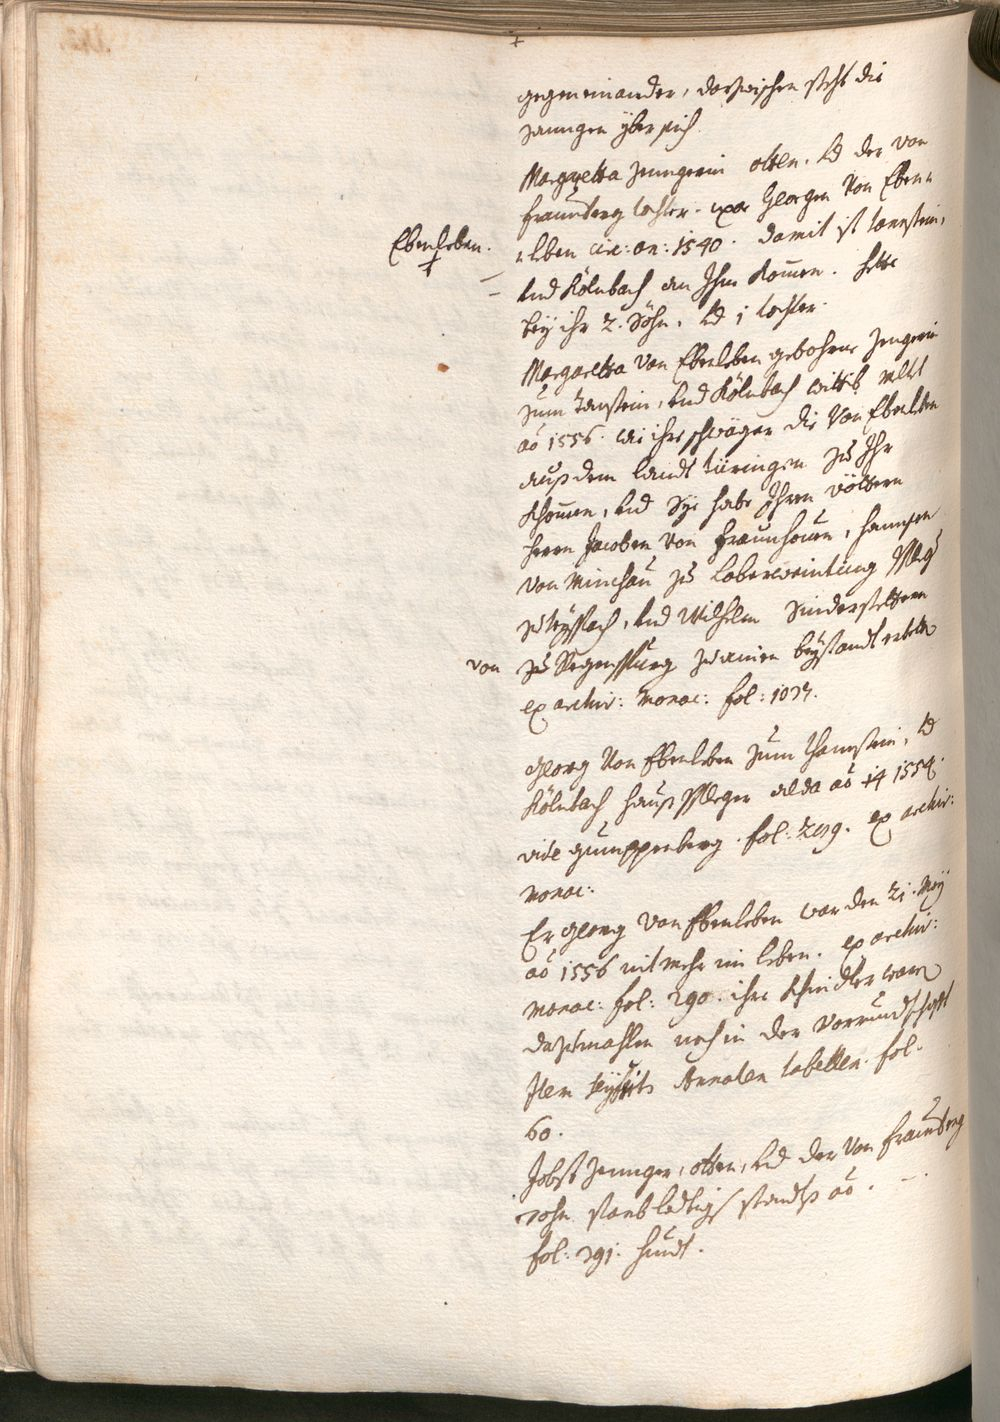 gegeneinander, darzwischen steht die
Zenngen yber sich
Margretta Zenngerin otten. Vd der von
fraunberg tochter. uxor Georgen Von Eben=
Ebenleben.
=leben cir: an: 1540. damit ist tannstein,
Vnd Kölnbach an Ihm komen. hette
bey ihr 2. Söhn. Vd 1 tochter.
Margaretta Von Ebenleben gebohrne Zengerin
zum Tanstein, Vnd Kölnbach wittib meldt
ao 1556. wie ihre schwäger die Von Ebenleben
auß dem landt türingen zu Ihr
khomen, Vnd Sye habe Ihren vöttern
herrn Jacoben Von fraunhouen, hannsen
von Minchau zu laberweinting Pfleger
zu teyspach, Vnd Wilhelm Sinderstettern
von
zu Regenspurg zu ainen beystandt erbetten
ex archiv: monac: fol: 1037.
Georg Von Ebenleben zum thannstein, Vd
Kölnbach haußPfleger alda ao 1554.
vide gumppenberg. fol: 259. ex archiv:
monac:
Er Georg Von Ebenleben war den 21. May
ao 1556 nit mehr im leben. ex archiv:
monac: fol: 290. ihre khinder waren
dazumahlen noch in der Vormundtschafft
Item Annalen tabellen. fol.
60.
Jobst Zennger, otten, Vd der Von fraunberg
sohn. starb ledtig standts ao. –
fol: 391. hundt.